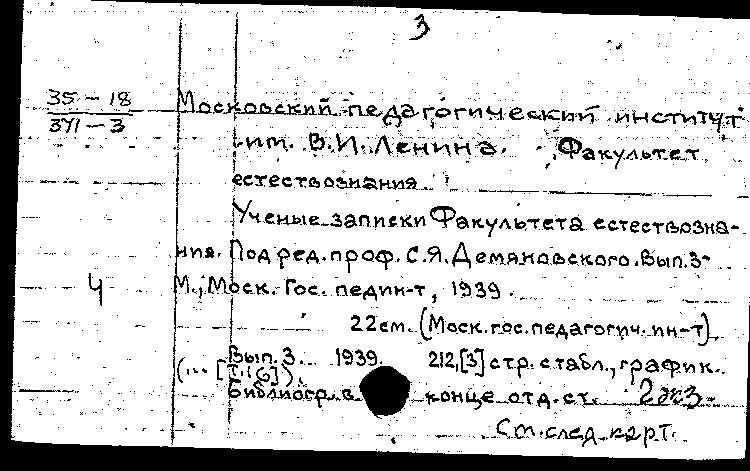 3
35 – 18
371 – 3
Московский педагогический институт
им. В.И. Ленина. Факультет
естествознания
Ученые записки Факультета естествозна-
ния. Под ред. проф. С.Я. Демяновского. Вып. 3-
Ч
М., Моск. Гос. пединст-т, 1939.
22 см. (Моск. гос. педагогич. ин-т)
Вып. 3. 1939. 212,[3] стр. с табл., график.
(... [т. 1(6)]).
Библиогр. в конце отд. ст. 2 экз-
См. след. карт.